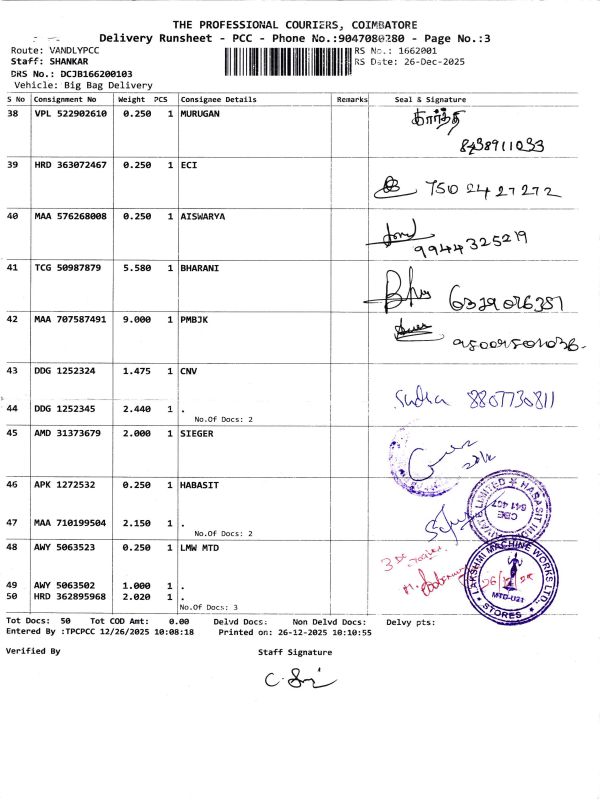 THE PROFESSIONAL COURIERS, COIMBATORE
Delivery Runsheet - PCC - Phone No.:9047080280 - Page No.:3
Route: VANDLYPCC RS No.: 1662001
Staff: SHANKAR RS Date: 26-Dec-2025
DRS No.: DCJB166200103
Vehicle: Big Bag Delivery
S No Consignment No Weight PCS Consignee Details Remarks Seal & Signature
38 VPL 522902610 0.250 1 MURUGAN கார்த்தி
8438911033
39 HRD 363072467 0.250 1 ECI
750 24 27 27 2
40 MAA 576268008 0.250 1 AISWARYA
9944325219
41 TCG 50987879 5.580 1 BHARANI
6379026351
42 MAA 707587491 9.000 1 PMBJK
43 DDG 1252324 1.475 1 CNV
Sudha 8807730811
44 DDG 1252345 2.440 1 .
No.Of Docs: 2
45 AMD 31373679 2.000 1 SIEGER
46 APK 1272532 0.250 1 HABASIT
HABASIT
PRIVATE LIMITED
CBE
641 407
47 MAA 710199504 2.150 1 .
No.Of Docs: 2
48 AWY 5063523 0.250 1 LMW MTD
LAKSHMI MACHINE WORKS LTD.,
MTD-U21
STORES
49 AWY 5063502 1.000 1 .
50 HRD 362895968 2.020 1 .
No.Of Docs: 3
Tot Docs: 50 Tot COD Amt: 0.00 Delvd Docs: Non Delvd Docs: Delvy pts:
Entered By :TPCPCC 12/26/2025 10:08:18 Printed on: 26-12-2025 10:10:55
Verified By Staff Signature